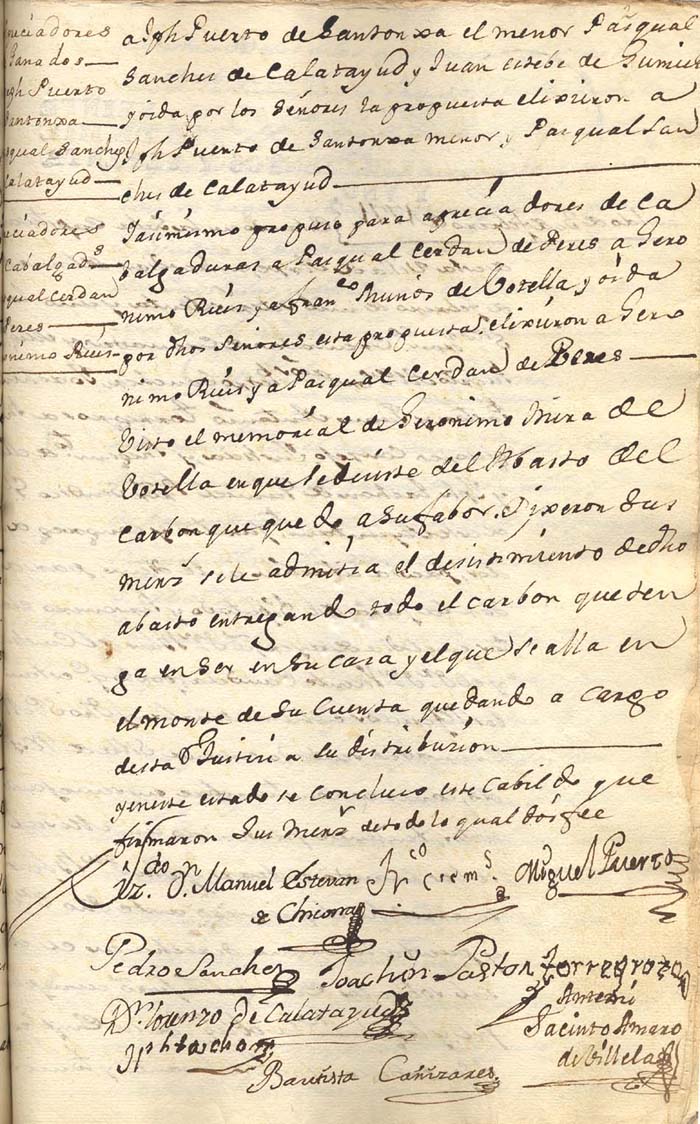 reciadores
Ganados
Jph Puerto
Santonxa
squal Sanches
Calatayud
reciadores
Cabalgads
squal Cerdan
Peres
onimo Ruis
a Jph Puerto de Santonxa el menor Pasqual
Sanches de Calatayud y Juan estebe de Gumiel
y óida por los Señores la propuesta elixieron a
Jph Puerto de Santonxa menor y Pasqual San
ches de Calatayud
Iasimismo propuso para apreciadores de Ca
balgaduras a Pasqual Cerdan de Peres a Gero
nimo Ruis y a Franco Munós de Votella y óida
por dhos Señores esta propuesta elixieron a Gero
nimo Ruis y a Pasqual Cerdan de Peres
Visto el memorial de Geronimo Mira de
Votella en que se deziste del Abasto del
Carbon que quedo a Su fabor. Dixeron Sus
merzs se le admitia el desistimiento de dho
abasto entregando todo el carbon que ten
ga en Ser en Su Casa y el que se alla en
el monte de Su Cuenta quedando a cargo
desta Justizia su distribuzion
y en este estado se Concluio este Cabildo que
firmaron Sus merzs de todo lo qual doi fee
Lizdo Dn Manuel Estevan
de Chicorra
Miguel Puerto
Pedro Sanches
Joachin Paston Torregroza
Dn Lorenzo de Calatayud
Antemi
Jacinto Amaro
de Villela
Bautista Cañizares